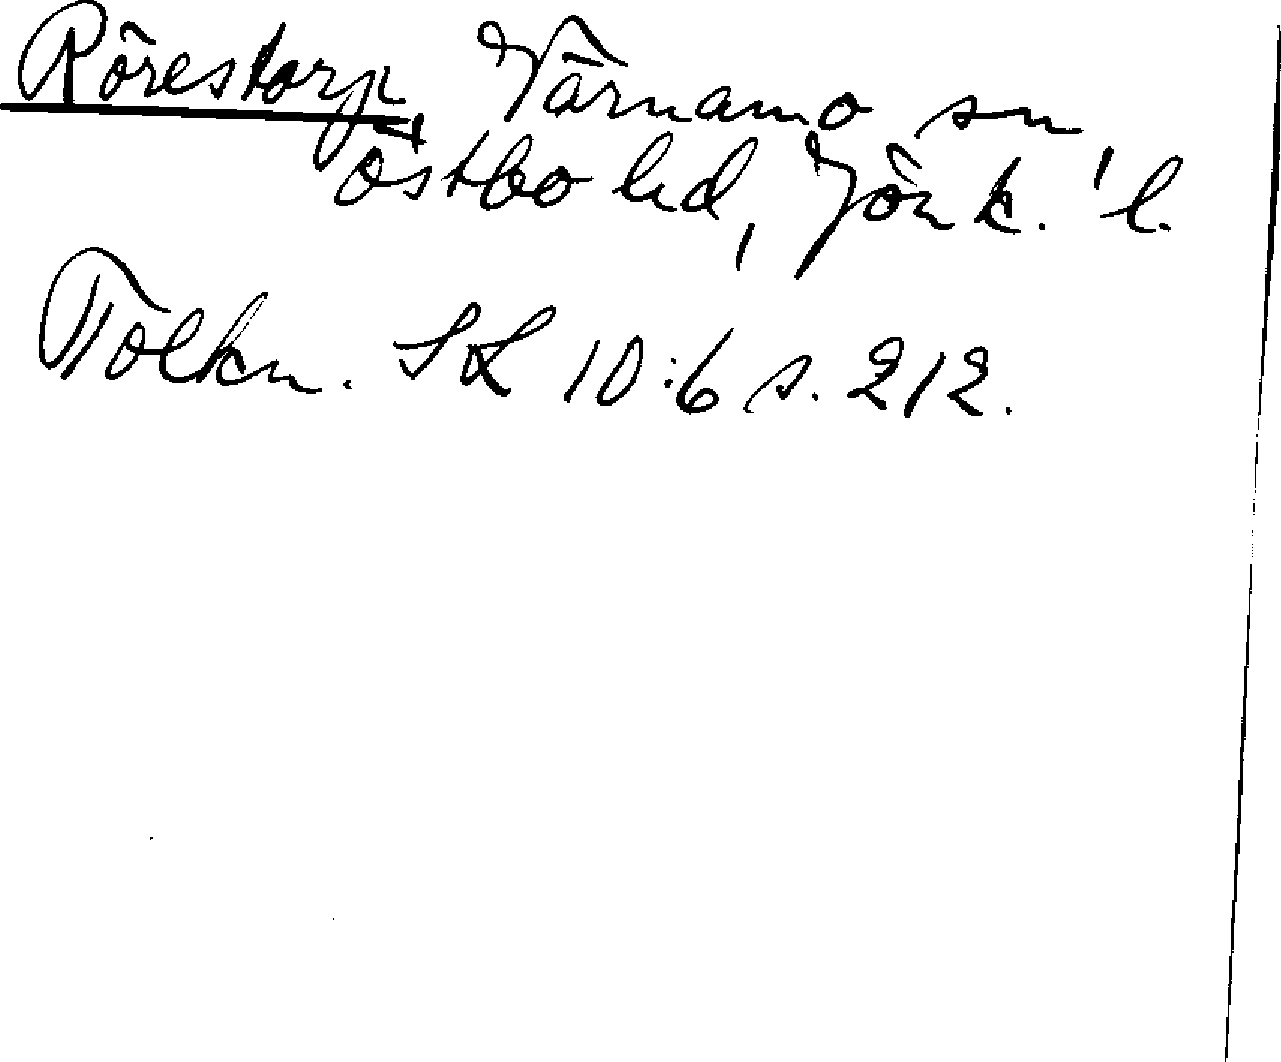 Rörestorp Värnamo sn
Östbo hd, Jönk. l.
Tolkn. SL 10:6 s. 212.